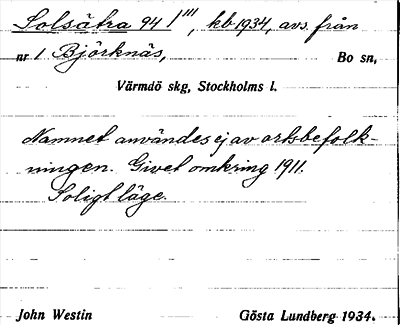 Solsätra 94 1/III, kb 1934, avs. från
nr 1 Björknäs, Bo sn,
Värmdö skg, Stockholms l.
Namnet användes ej av ortsbefolk-
ningen. Givet omkring 1911.
Soligt läge.
John Westin Gösta Lundberg 1934.